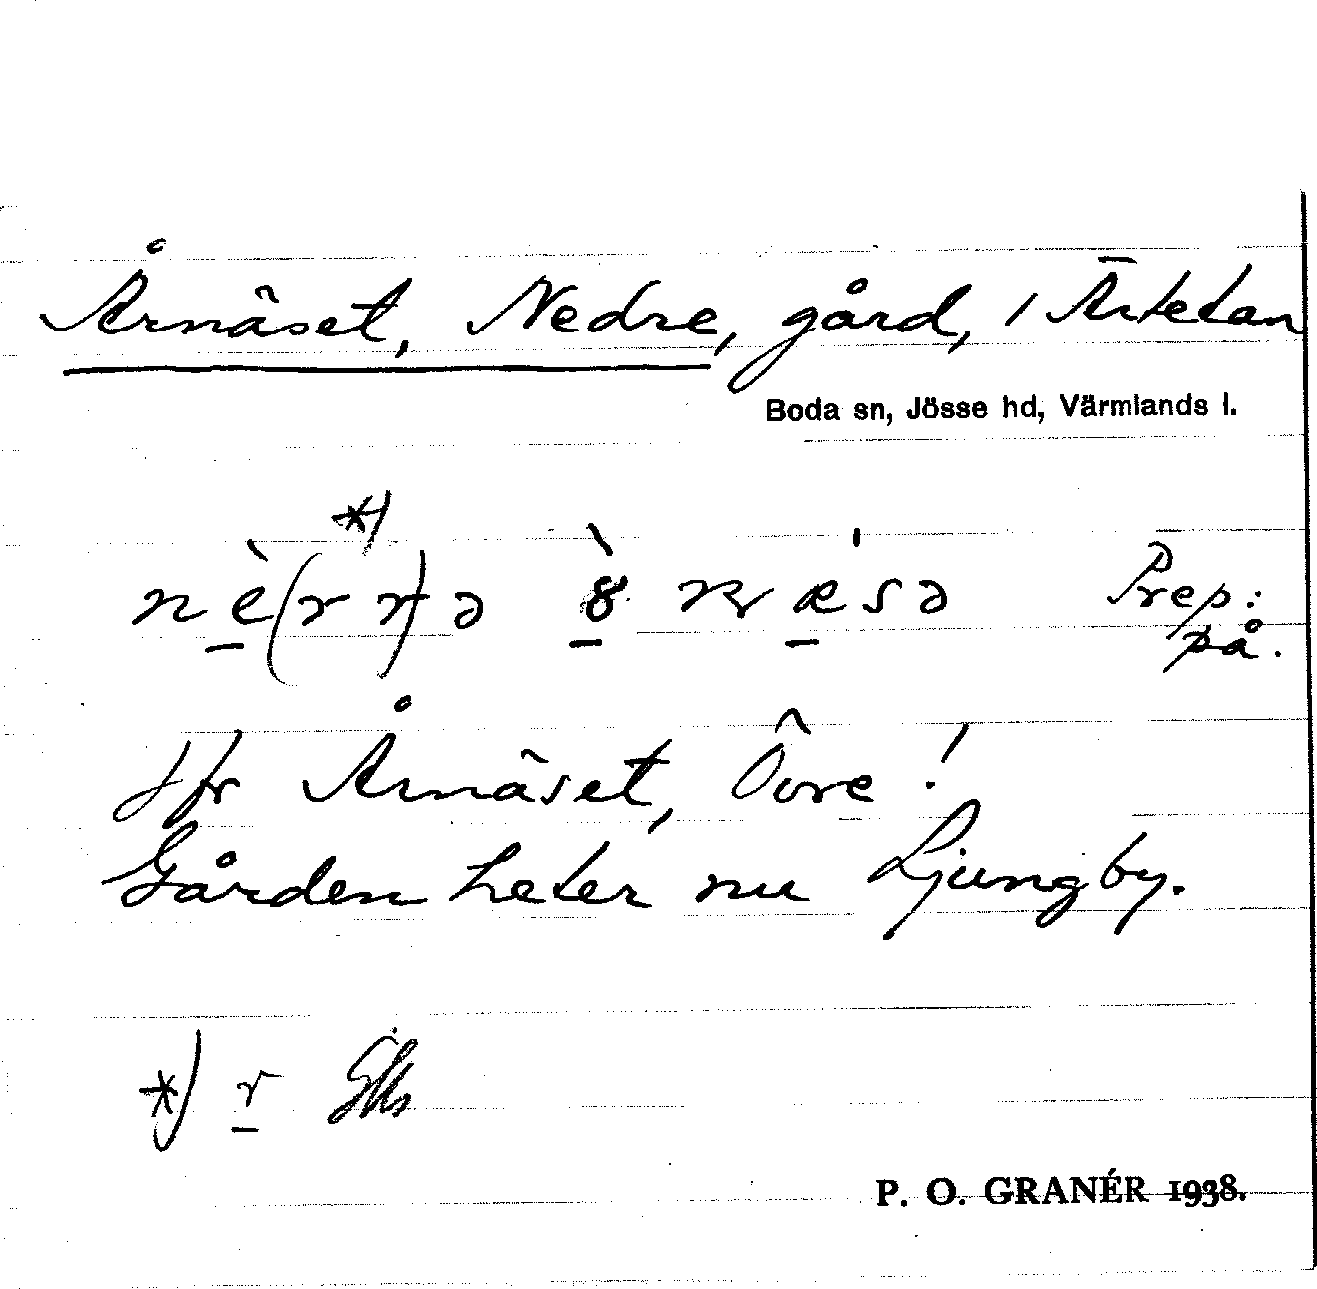 Årnäset, Nedre, gård, i Ärtetan
Boda sn, Jösse hd, Värmlands l.
*)
Prep:
på.
Jfr Årnäset, Övre!
Gården heter nu Ljungby.
*) r
P. O. GRANÉR 1938.